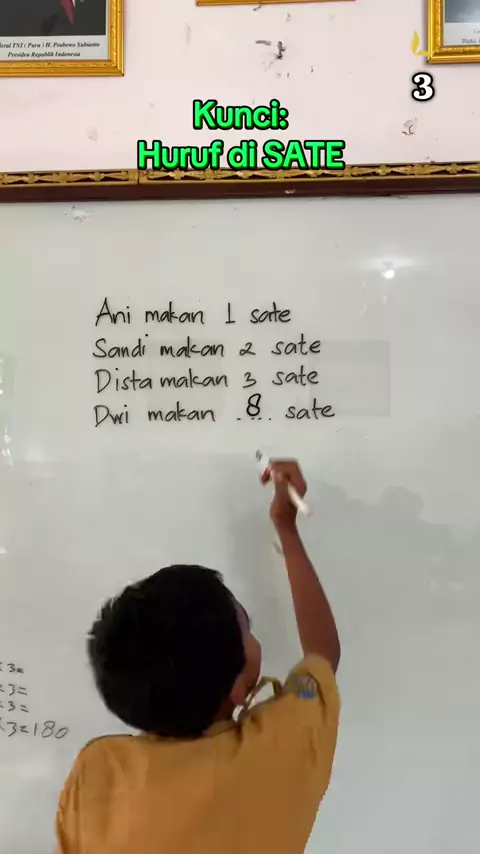 deral TNI (Purn) H. Prabowo Subianto
Presiden Republik Indonesia
3
Kunci:
Huruf di SATE
Ani makan 1 sate
Sandi makan 2 sate
Dista makan 3 sate
Dwi makan ..8.. sate
x 3 =
x 3 =
x 3 =
x 3 = 180